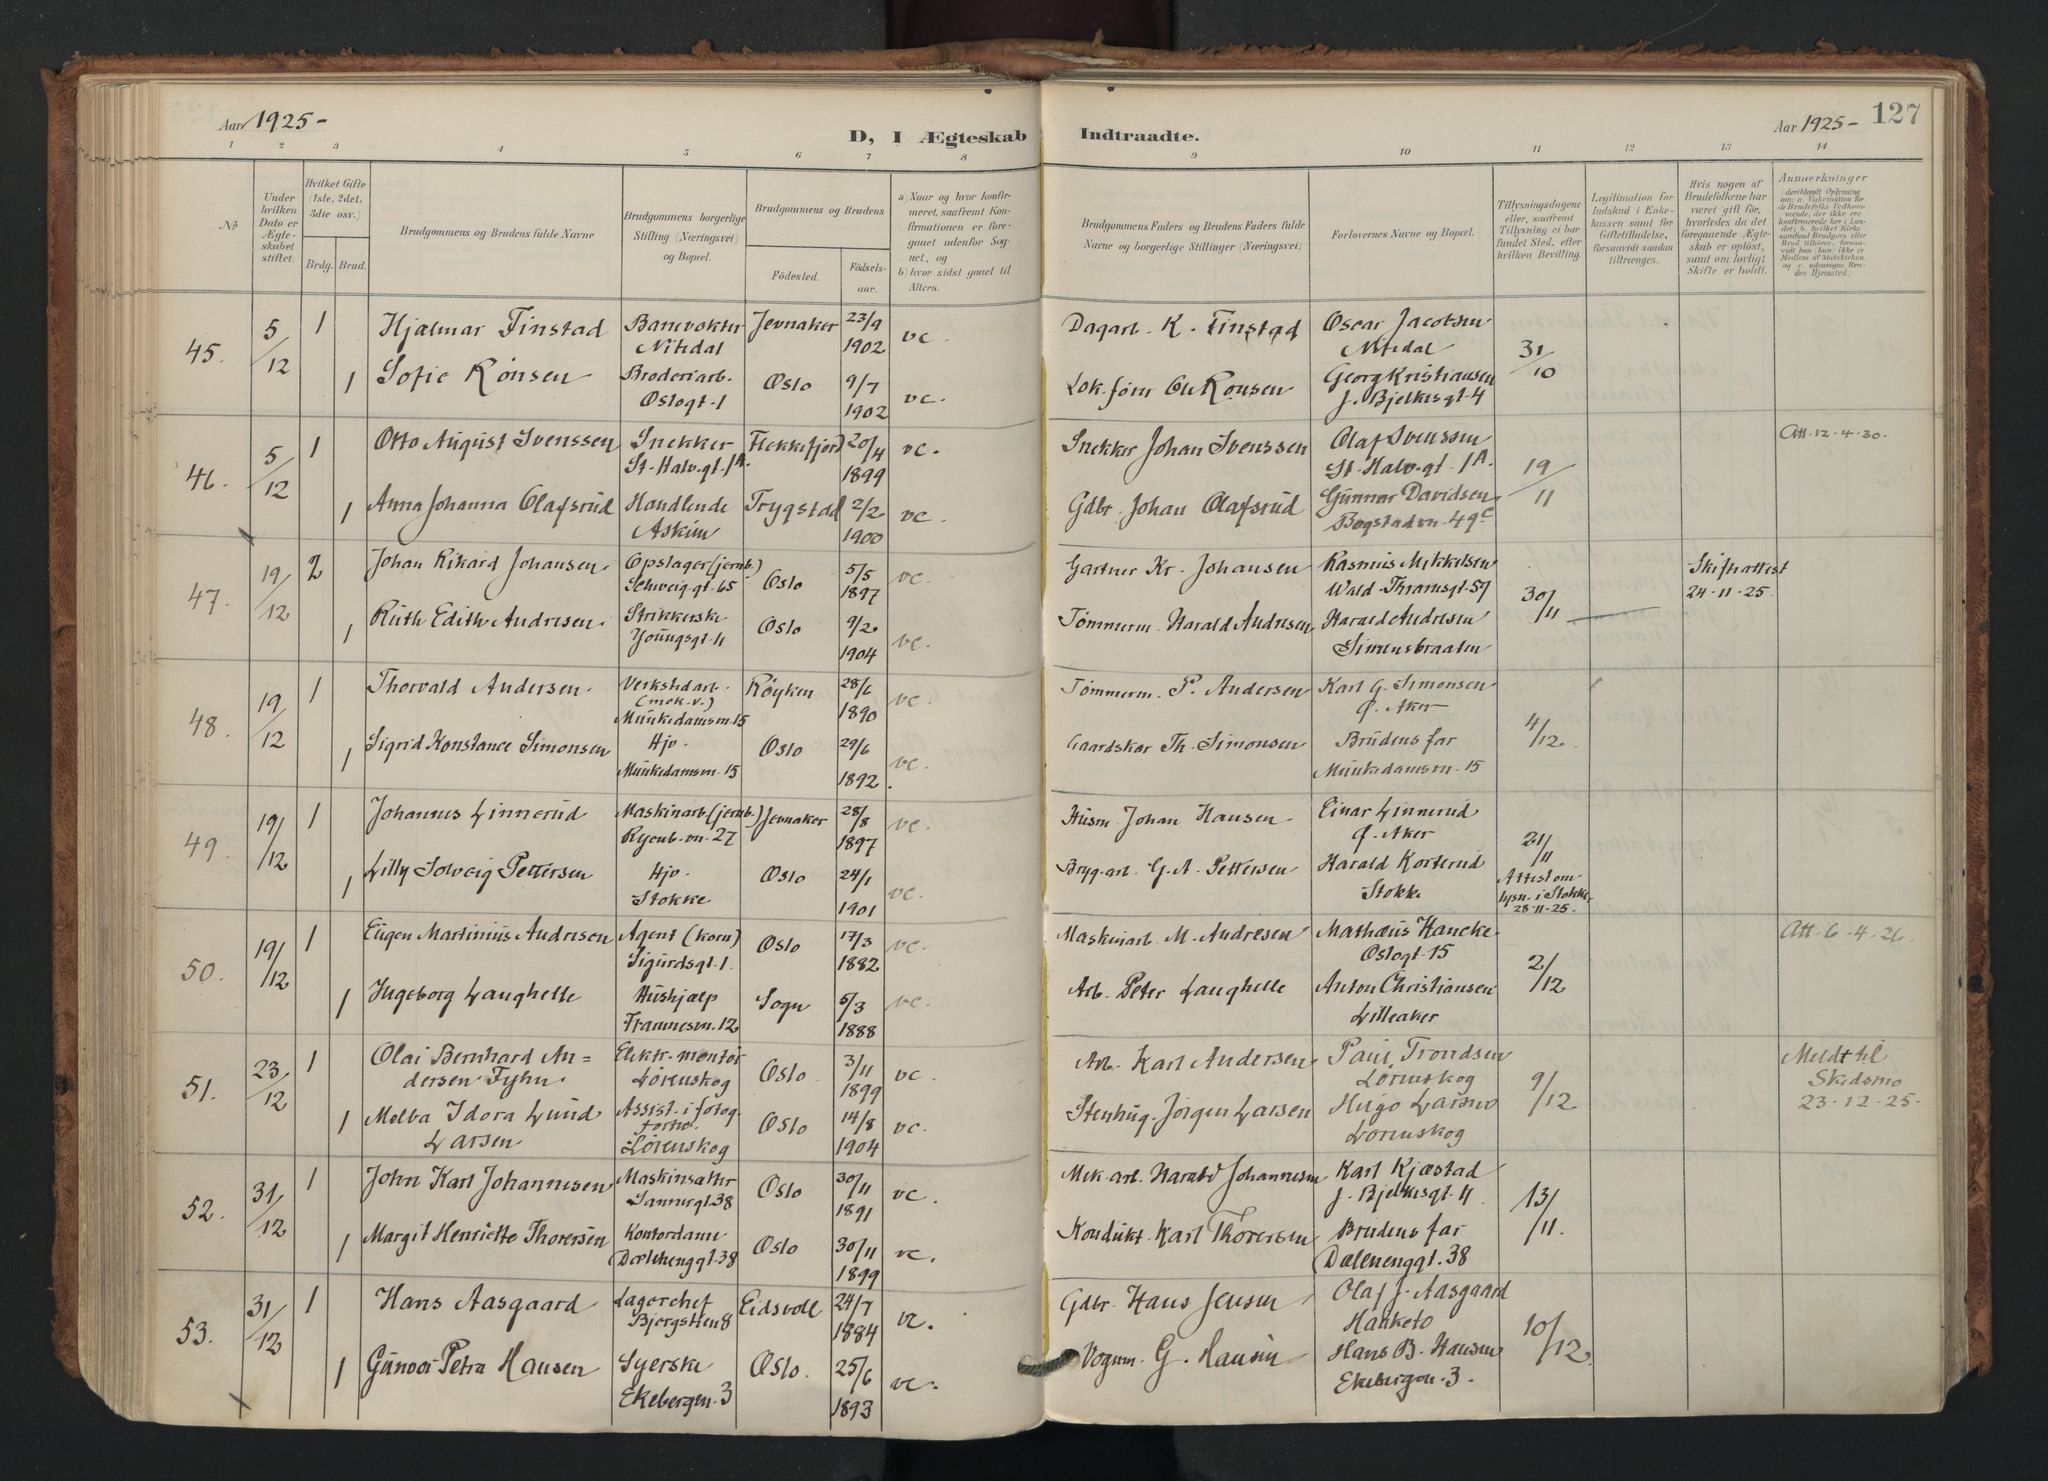 Aar 1925-
D, I Ægteskab Indtraadte.
Aar 1925- 127
1 2 3 4 5 6 7 8 9 10 11 12 13 14
No
Under hvilken Dato er Ægteskabet stiftet.
Hvilket Gifte (1ste, 2det, 3die osv.)
Brdg. Brud.
Brudgommens og Brudens fulde Navne
Brudgommens borgerlige Stilling (Næringsvei) og Bopæl.
Brudgommens og Brudens
Fødested. Fødselsaar.
a) Naar og hvor konfirmeret, saafremt Konfirmationen er foregaaet udenfor Sognet, og
b) hvor sidst gaaet til Alters.
Brudgommens Faders og Brudens Faders fulde Navne og borgerlige Stillinger (Næringsvei)
Forlovernes Navne og Bopæl.
Tillysningsdagene eller, saafremt Tillysning ei har fundet Sted, efter hvilken Bevilling.
Legitimation for Indskud i Enkekassen samt for Giftetilladelse, forsaavidt saadan tiltrænges.
Hvis nogen af Brudefolkene har været gift før, hvorledes da det foregaaende Ægteskab er opløst, samt om lovligt Skifte er holdt.
Anmærkninger
45. 5/12 1 Hjalmar Finstad Banevokter Nitedal Jevnaker 23/9 1902 vc. Dagarb. K. Finstad Oscar Jacobsen Nitedal 31/10
1 Sofie Rønsen Broderiarb. Oslogt. 1 Oslo 9/7 1902 vc. Lok.förer Ole Rönsen Georg Kristiansen J. Bjelkesgt. 4
46. 5/12 1 Otto August Svenssen Snekker St. Halv.gt. 1A. Flekkefjord 20/4 1899 vc. Snekker Johan Svenssen Olaf Svenssen St. Halv.gt. 1A. 19/11 Att. 12.4.30.
1 Anna Johanna Olafsrud Handlende Askim Trygstad 2/2 1900 vc. Gdbr. Johan Olafsrud Gunnar Davidsen Bogstadvn. 49c
47. 19/12 2 Johan Rikard Johansen. Opslager (jernb.) Schweig.gt. 65 Oslo 5/5 1897 vc. Gartner Kr. Johansen Rasmus Mikkelsen Wald. Thranesgt. 59 30/11 Skifteattest 24.11.25.
1 Ruth Edith Andresen. Strikkerske Youngsgt. 11 Oslo 9/2 1904 vc. Tømmerm. Harald Andresen Harald Andresen Simensbraaten
48. 19/12 1 Thorvald Andersen. Verkstedarb. (mek. v.) Munkedamsvn. 15 Røyken 28/6 1890 vc. Tømmerm. P. Andersen Karl G. Simonsen Ø. Aker 4/12
1 Sigrid Konstance Simonsen Hjv. Munkedamsvn. 15 Oslo 29/6 1892. vc. Gaardskar Th. Simonsen Brudens far Munkedamsvn. 15
49. 19/12 1 Johannes Linnerud Maskinarb. (jernb.) Ryenb.vn. 27 Jevnaker 28/8 1897 vc. Husm. Johan Hansen Einar Linnerud Ø. Aker 21/11
1 Lilly Solveig Pettersen Hjv. Stokke Oslo 24/1 1901 vc. Bryg.arb. G. A. Pettersen Harald Korterud Stokke Attest om lysn. i Stokke 28.11.25.
50. 19/12 1 Eugen Martinius Andresen Agent (korn) Sigurdsgt. 1. Oslo 17/3 1882 vc. Maskinarb. M. Andresen Mathæus Hancke. Oslogt. 15 2/12 Att. 6.4.26.
1 Ingeborg Laughelle Hushjælp Framnesvn. 12 Sogn 5/3 1888 vc. Arb. Peter Laughelle Anton Christiansen Lilleaker
51. 23/12 1 Olai Bernhard Andersen Fyhn. Elektr. montør Lørenskog Oslo 3/11 1899 vc. Arb. Karl Andersen Paul Trondsen Lørenskog 9/12 Meldt til Skedsmo 23.12.25.
1 Melba Idora Lund Larsen Assist. i fotog. Lörenskog Oslo 14/8 1904 vc. Stenhug. Jörgen Larsen Hugo Larsen Lørenskog
52. 31/12 1 John Karl Johannesen Maskinsætter Sannergt. 38 Oslo 30/11 1891 vc. Mek. arb. Harald Johannesen Karl Kjæstad J. Bjelkesgt. 11. 13/11
1 Margit Henriette Thoresen Kontordame Dælenenggt. 38 Oslo 30/11 1899 vc. Kondukt. Karl Thoresen Brudens far Dælenenggt. 38
53. 31/12 1 Hans Aasgaard Lagerchef Bjergstien 8 Eidsvoll 24/7 1884 vc. Gdbr. Hans Jensen Olaf J. Aasgaard Hauketo 10/12
1 Gunvor Petra Hansen Syerske Ekebergvn. 3 Oslo. 25/6 1893 vc. Vognm. G. Hansen Hans B. Hansen Ekebergvn. 3.